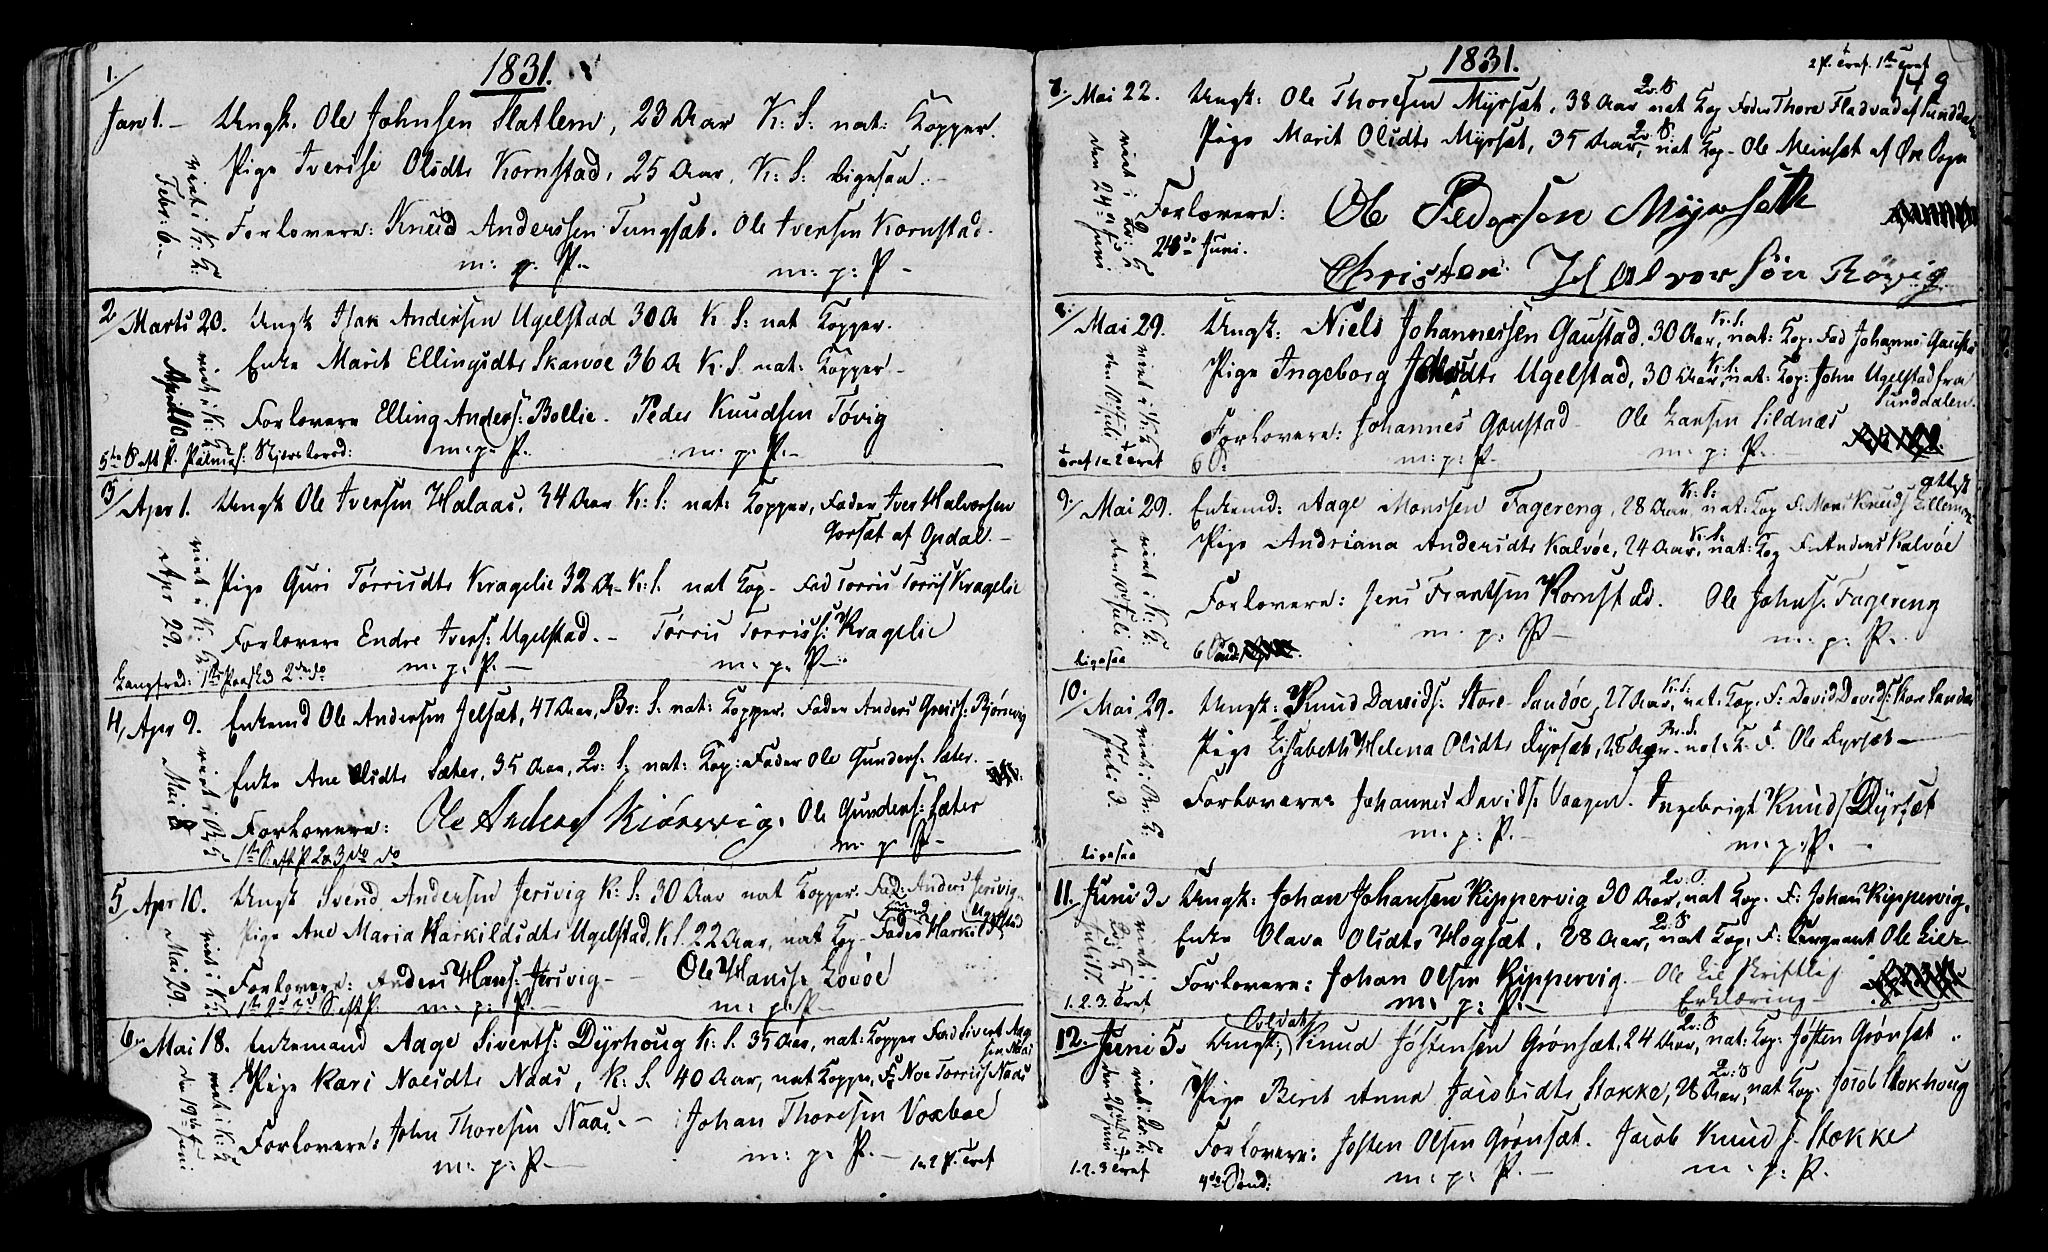 1831.
1.
Jan 1. – Ungk. Ole Johnsen Slatlem, 23 Aar K: S: nat: Kopper.
Pige Iverine Olsdtr Kornstad, 25 Aar, K: S: ligesaa. –
Forlovere: Knud Anderssen Tungsæt. Ole Iversen Kornstad.
m: p: P. – m: p: P –
viet i K: K: Febr: 6. –
2/ Marts 20. Ungk Isak Andersen Ugelstad 30 A K S: nat Kopper.
Enke Marit Ellingsdtr Skarvøe 36 A K. S. nat: Kopper –
Forlovere Elling Anders: Bollie – Peder Knudsen Tøvig
m. p. P. m. p. P. –
viet i K: K: April 10.
3/ Apr 1. Ungk Ole Iversen Halaas, 34 Aar K: S: nat: Kopper, Fader Iver Halvorsen
Gorsæt af Opdal. –
Pige Guri Tørrisdtr Kragelie 32 A – K: S. nat Kop – Fad Torris Torris Kragelie
Forlovere Endre Ivers: Ugelstad. – Tørris Torriss: Kragelie
m: p. P. – m. p. P –
viet i K. K: Apr 29.
Langfred: 1ste Paaskd 2den do
4/ Apr 9. Enkemd Ole Andersen Jelsæt, 47 Aar, Br: S: nat: Kopper. Fader Anders Bjørnvig
Enke Ane Olsdtr Sæter, 35 Aar, Qv: S. nat: Kop: Fader Ole Gunders: Sæter. –
Forlovere: Ole Anders Kiørsvig. Ole Gunders: Sæter
m. p P –
viet i Br: K Mai 8
5/ Apr 10. Ungk Svend Andersen Jersvig K: S: 30 Aar nat Kopper. Fad: Anders Jersvig
Pige Ane Maria Harkildsdtr Ugelstad, K S. 22 Aar, nat Kop – Fader Harkild Ugelstad
Forlovere: Anders Hans: Jersvig – – Ole Hanss: Løvøe
m: p: P. – m: p: P. –
viet i K: K: Mai 29.
6 Mai 18. Enkemand Aage Siverts: Dyrhoug K: S. 35 Aar, nat: Kopper Fad Sivert Aagesen Moi
Pige Kari Noesdtr Naas, K: S. 40 Aar, nat Kopper, F: Noe Torris Naas
Forlovere: John Thoresen Naas. – Johan Thoresen Voxboe
m: p: P – m: p: P. –
viet i K: K den 19de Juni
1831.
7. Mai 22. Ungk: Ole Thoresen Myrsæt, 38 Aar Qv. S nat Kop Fader Thore Fladvad af Sunddalen
Pige Marit Olsdtr Myrsæt, 35 Aar, Qv S: nat Kop – Ole Meinsæt af Øre Sogn
Forlovere: Ole Pedersen Myrseth
24de Juni. Christen Halvorsön Rövig
viet i Qv: K den 24de Juni
8. Mai 29. Ungk: Niels Johannessen Gaustad, 30 Aar, K: S. nat: Kop. Fad Johannes Gaustad
Pige Ingeborg Johnsdtr Ugelstad, 30 Aar, K. S. nat: Kop: John Ugelstad fra
Sunddalen.
Forlovere: Johannes Gaustad – Ole Larsen Sildnæs
m: p: P. m: p: P. –
viet i K: K: den 10 Juli
9/ Mai 29. Enkemd: Aage Monssen Fagereng, 28 Aar, K: S: nat: Kop F: Mons Knuds
Pige Andriana Andersdtr Kalvøe, 24 Aar, K. S. nat: Kop F: Anders Kalvøe
Forlovere: Jens Frantsen Kornstad. Ole Johns: Fagereng
m. p: P – m: p: P.
viet i K: K: den 10 Juli
ligesaa
10. Mai 29. Ungk: Knud Davids: Store Sandøe, 27 Aar, K: S: nat: Kop. F: David Davids: Store Sandøe
Pige Elisabeth Helena Olsdtr Dyrsæt, 28 Aar – Br. S. nat: K: F: Ole Dyrsæt –
Forlovere Johannes Davids: Vaagen. Ingebrigt Knuds Dyrsæt
m: p: P. – m: p: P. –
viet i Br: K: Juli 3.
ligesaa
11. Juni 3. Ungk: Johan Johansen Rippervig 30 Aar, Qv. S. nat Kop. F: Johan Rippervig.
Enke Olava Olsdtr Hogsæt, 28 Aar, Qv: S nat Kop. F: Sergeant Ole Lie
Forlovere: Johan Olsen Rippervig. – Ole Lie Skriftlig
m: p: P. – Erklæring –
viet i Qv: K Juli 17.
1. 2. 3. Tref.
12. Juni 5. Ungk: Soldat Knud Jóstensen Grønsæt, 24 Aar, Qv: S nat: Kop: Jósten Grønsæt
Pige Berit Anna Jacobsdtr Stokke, 28 Aar, Qv: S nat Kop: Jacob Stokhoug
Forlovere: Josten Olsen Grønsæt. Jacob Knuds: Stokke
m: p: P. – m: p: P.
viet: Qv: K:
1. 2. 3 Tref 4de Sønd: